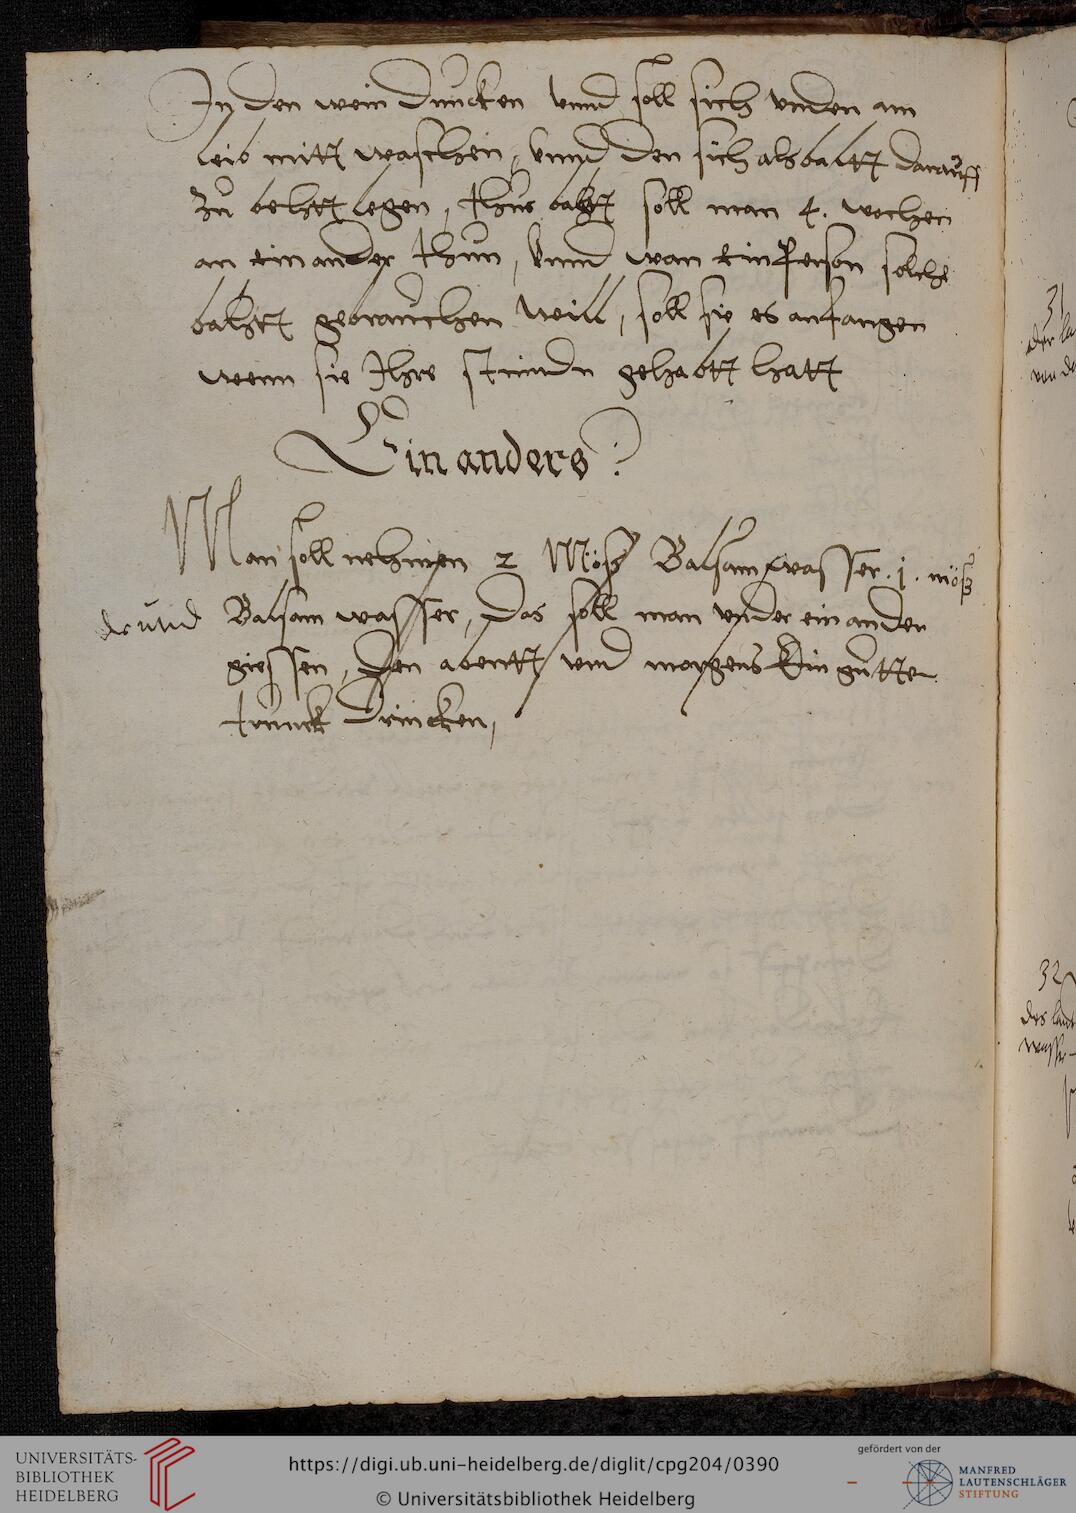 In den wein duncken vnnd soll sich vnden am
leib mitt waschen, vnnd den sich alsbaltt darauff
zu behtt legen, thus bahtt soll man 4. wochen
an ein ander thun, vnnd wan ein person solche
bahtt gebrauchen will, soll sie es anfangen
wenn sie Ihre stundn gehabtt hatt
Ein anders
Man soll nehmen 2 Möß Balsam wasser. j. möß
Balsam wasser, das soll man vnder ein ander
giessen, den abentt vnd morgens Ein gutten
trunck drincken,
31
der
von
32
des
wasser
UNIVERSITÄTS-
BIBLIOTHEK
HEIDELBERG
https://digi.ub.uni-heidelberg.de/diglit/cpg204/0390
© Universitätsbibliothek Heidelberg
gefördert von der
MANFRED
LAUTENSCHLÄGER
STIFTUNG